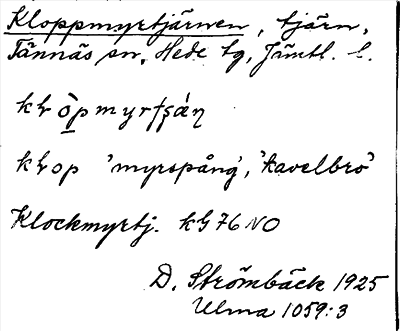 Kloppmyrtjärnen, tjärn,
Tännäs sn, Hede tg, Jämtl. l.
kⱡòpmyrtʂǽṇ
kⱡop 'myrspång', 'kavelbro'
Klockmyrtj. kG 76 NO
D. Strömbäck 1925
Ulma 1059:3